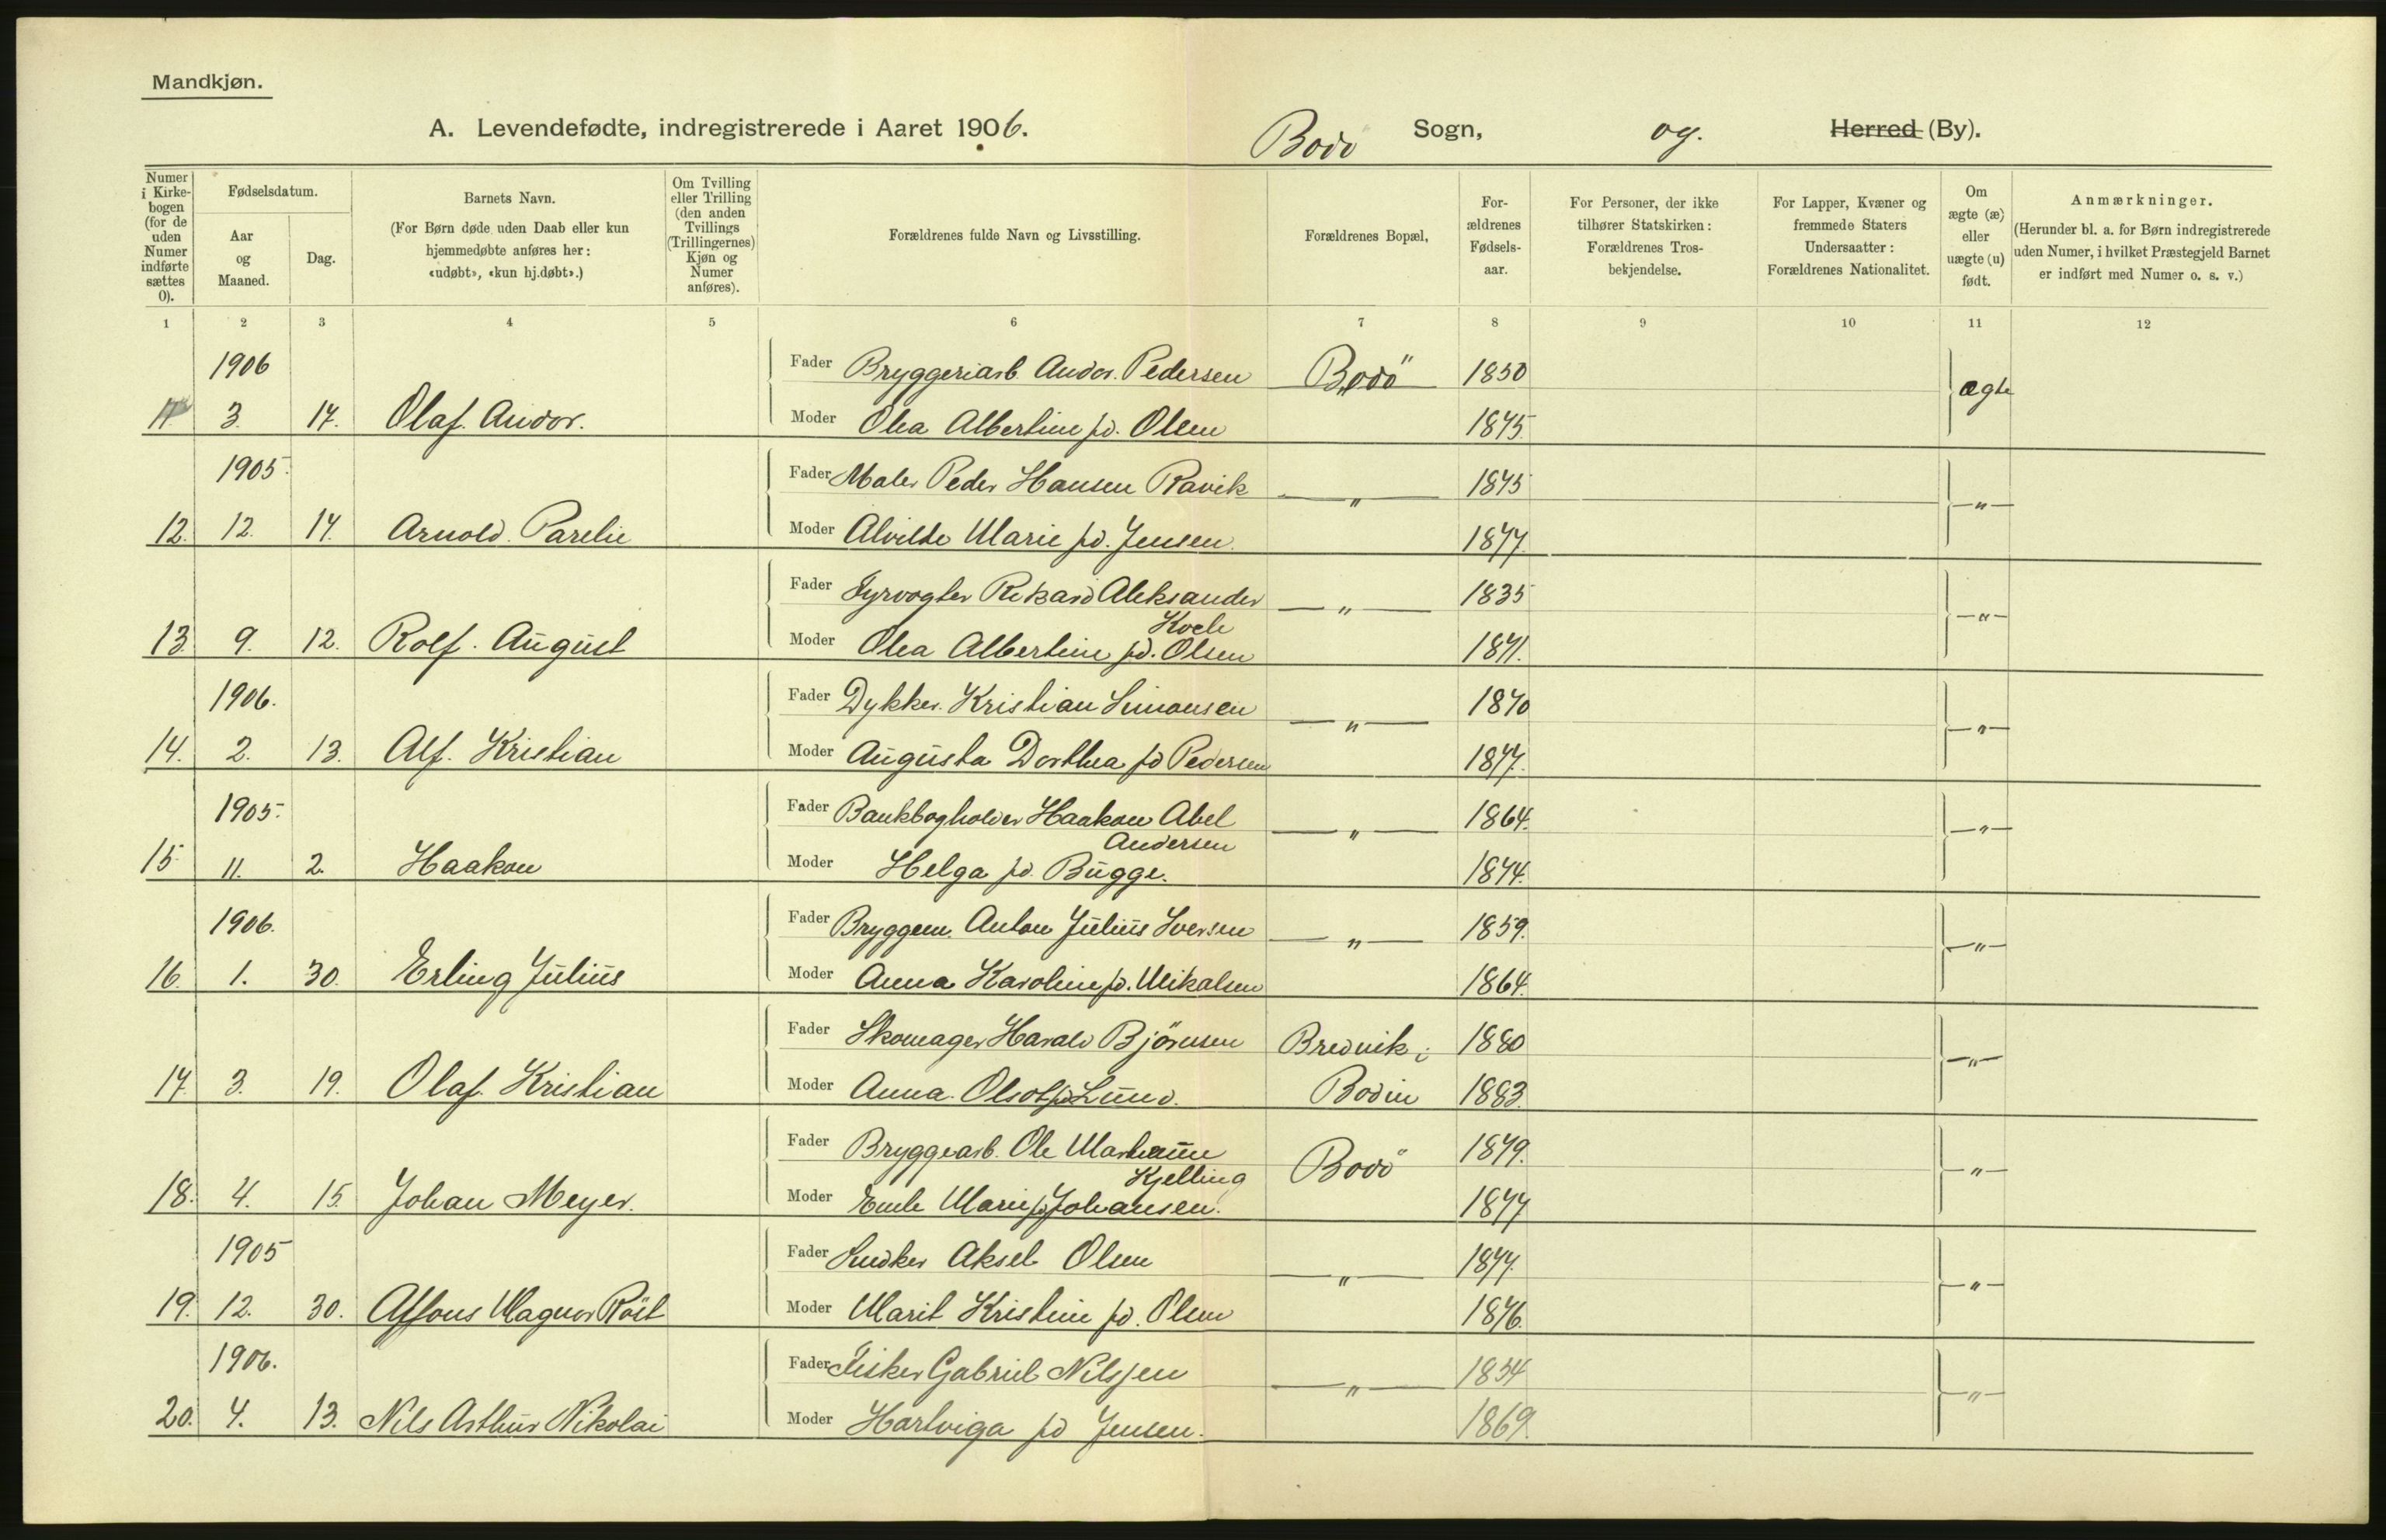 Mandkjøn.
A. Levendefødte, indregistrerede i Aaret 1906.
Bodö Sogn, og. Herred (By).
Numer i Kirkebogen (for de uden Numer indførte sættes 0).
Fødselsdatum.
Aar og Maaned.
Dag.
Barnets Navn.
(For Børn døde uden Daab eller kun hjemmedøbte anføres her: «udøbt», «kun hj.døbt».)
Om Tvilling eller Trilling (den anden Tvillings (Trillingernes) Kjøn og Numer anføres).
Forældrenes fulde Navn og Livsstilling.
Forældrenes Bopæl,
Forældrenes Fødselsaar.
For Personer, der ikke tilhører Statskirken: Forældrenes Trosbekjendelse.
For Lapper, Kvæner og fremmede Staters Undersaatter: Forældrenes Nationalitet.
Om ægte (æ) eller uægte (u) født.
Anmærkninger.
(Herunder bl. a. for Børn indregistrerede uden Numer, i hvilket Præstegjeld Barnet er indført med Numer o. s. v.)
1 2 3 4 5 6 7 8 9 10 11 12
1906 Fader Bryggeriarb. Andor. Pedersen Bodö 1850 ægte
11. 3. 17. Olaf. Andor. Moder Olea Albertine fd. Olsen 1875
1905. Fader Maler Peder Hansen Ravik —„— 1875 —„—
12. 12. 17. Arnold. Parelie Moder Alvilde Marie fd. Jensen. 1877.
Fader Fyrvogter Rikard Aleksander —„— 1835 —„—
Koch
13. 9. 12. Rolf. August Moder Olea Albertine fd. Olsen 1871.
1906. Fader Dykker. Kristian Simonsen —„— 1870 —„—
14. 2. 13. Alf. Kristian Moder Augusta Dorthea fd Pedersen 1877.
1905. Fader Bankbogholder Haakon Abel —„— 1864. —„—
Andersen
15 11. 2. Haakon Moder Helga fd. Bugge. 1874.
1906. Fader Bryggem. Anton Julius Iversen —„— 1859. —„—
16. 1. 30. Erling Julius Moder Anna Karoline fd. Mikalsen 1864.
Fader Skomager Harald Björnsen Bredvik i 1880 —„—
17. 3. 19. Olaf. Kristian Moder Anna. fd Lund. Bodin 1883.
Fader Bryggearb. Ole Bodö 1879. —„—
Kjelling
18. 4. 15. Johan Meyer. Moder Marie fd Johansen. 1877
1905 Fader Snedker Aksel Olsen —„— 1877. —„—
19. 12. 30. Alfons Magnor Röst Moder Marit Kristine fd. Olsen 1876.
1906. Fader Fisker Gabriel Nilssen —„— 1854 —„—
20. 4. 13. Nils Arthur Nikolai Moder Hartviga fd Jensen. 1869.